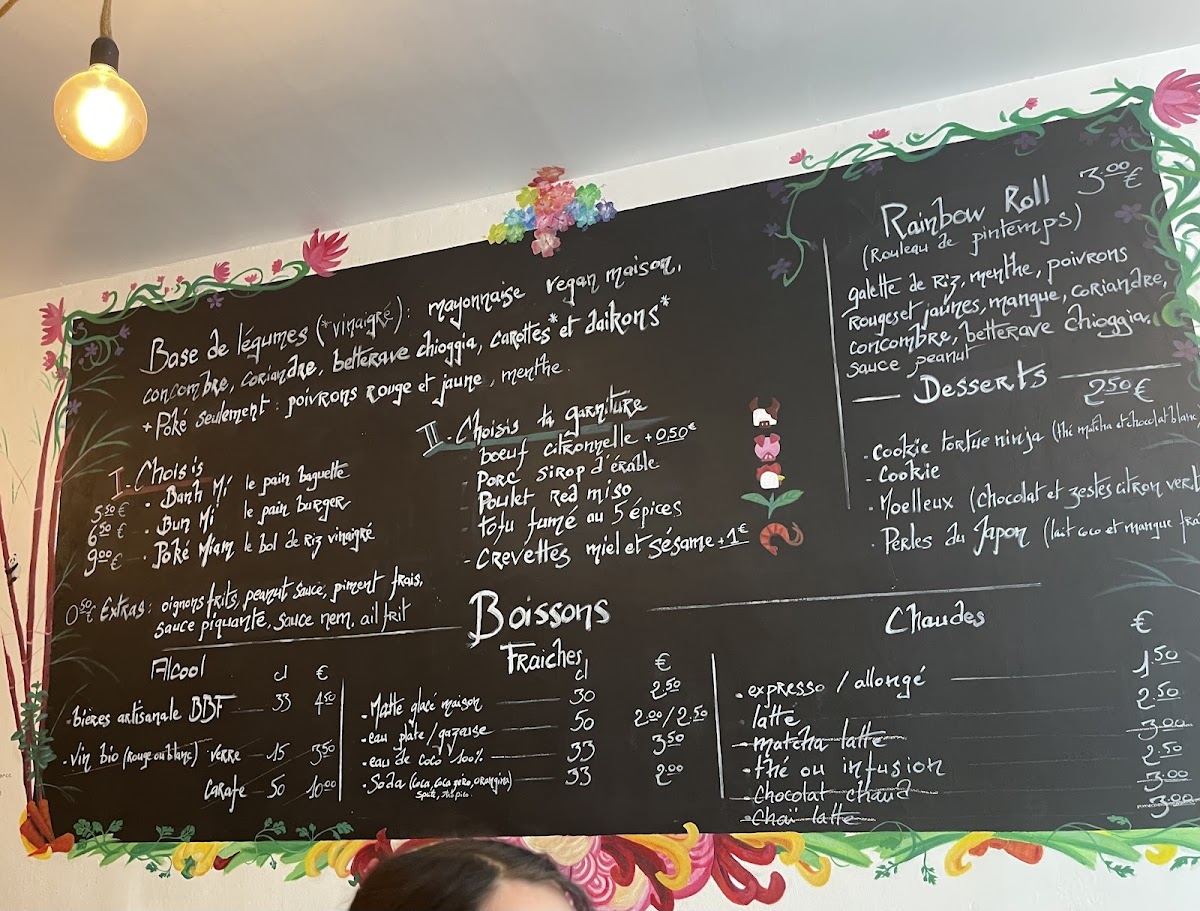 Base de légumes (*vinaigré) : mayonnaise vegan maison,
concombre, coriandre, betterave chioggia, carottes* et daikons*
+ Poké seulement : poivrons rouge et jaune, menthe.
I - Choisis
5.50 € • Banh Mi le pain baguette
6.50 € • Bun Mi le pain burger
9.00 € • Poké Miam le bol de riz vinaigré
0.50 € Extras : oignons frits, peanut sauce, piment frais,
sauce piquante, sauce nem, ail frit
II - Choisis ta garniture
- boeuf citronnelle + 0.50 €
- Porc sirop d'érable
- Poulet red miso
- tofu fumé au 5 épices
- crevettes miel et sésame + 1 €
Rainbow Roll 3.00 €
(Rouleau de pintemps)
galette de riz, menthe, poivrons
rouges et jaunes, mangue, coriandre,
concombre, betterave chioggia.
sauce peanut
Desserts
2.50 €
- Cookie tortue ninja (thé matcha et chocolat blanc
- Cookie
- Moelleux (chocolat et zestes citron vert
- Perles du Japon (lait coco et mangue
Boissons
Alcool cl €
- bières artisanale BBF 33 4.50
- vin bio (rouge ou blanc) verre 15 3.50
carafe 50 10.00
Fraiches cl €
- Matté glacé maison 30 2.50
- eau plate / gazeuse 50 2.00 / 2.50
- eau de coco 100% 33 3.50
- Soda (coca, coca zéro, orangina) 33 2.00
Chaudes €
• expresso / allongé 1.50
• latte 2.50
• matcha latte 3.00
• thé ou infusion 2.50
• Chocolat chaud 3.00
• Chai latte 3.00